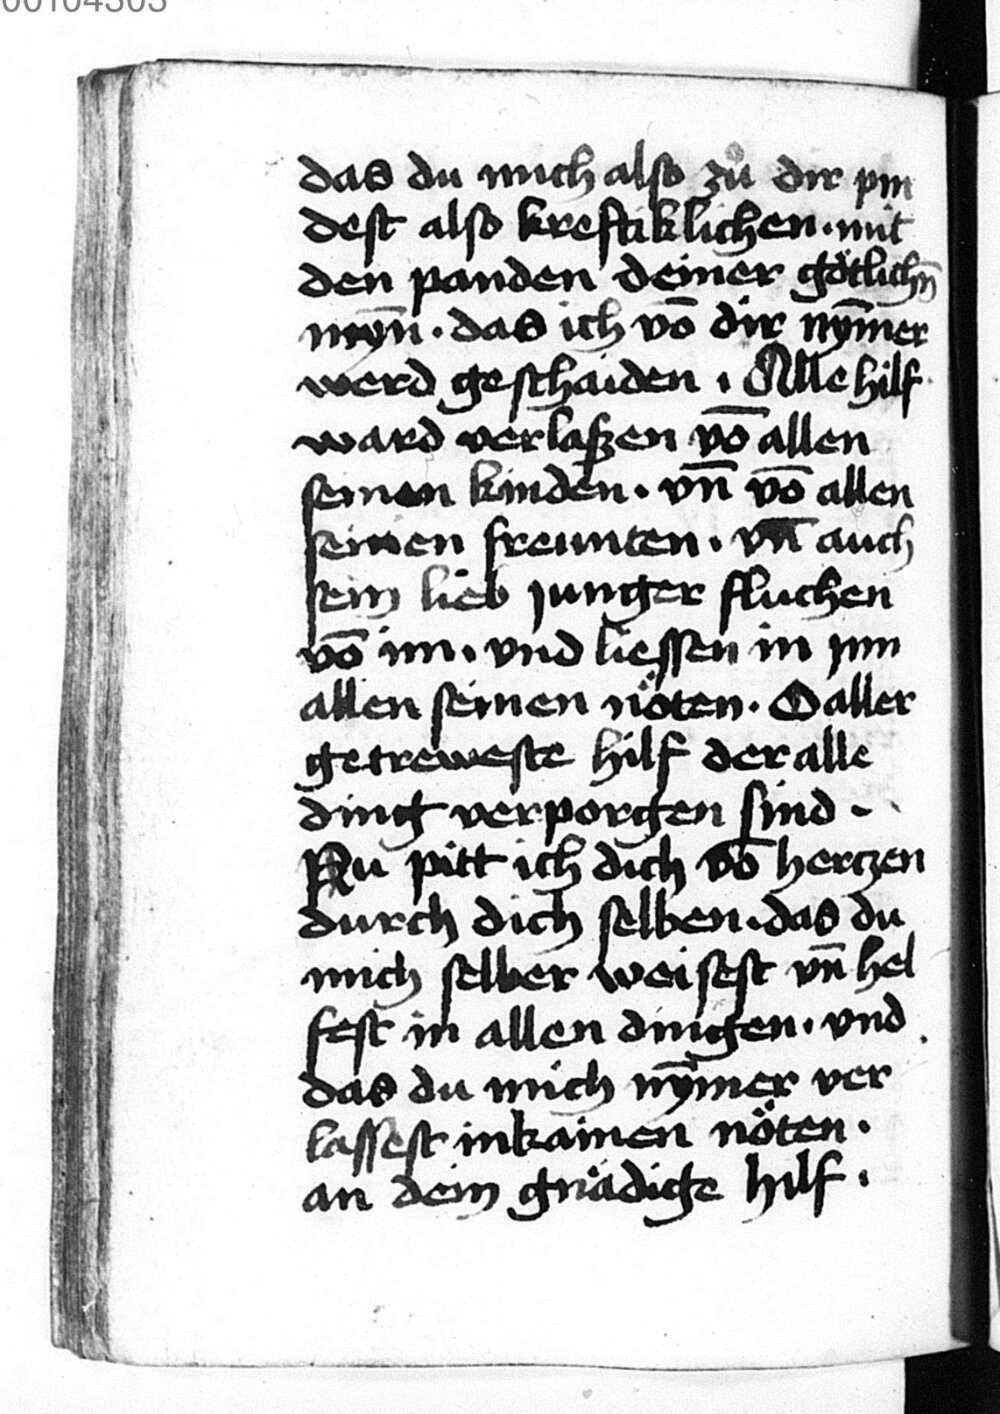 00104303
das du mich also zů dir pin
dest also kreftiklichen · mit
den panden deiner götlichn̄
myn̄ · das ich vō dir nym̄er
werd geschaiden · Alle hilf
ward verlaßen vō allen
seinen kinden · vn̄ vō allen
seinen freunten · vn̄ auch
sein lieb junger fluchen
vō im · vnd liessen in jnn
allen seinen nöten · O aller
getreweste hilf der alle
ding verporgen sind ·
Nu pitt ich dich vō hertzen
durch dich selben · das du
mich selber weisest vn̄ hel
fest in allen dingen · vnd
das du mich nym̄er ver
lassest in kainen nöten ·
an dein gnädige hilf ·